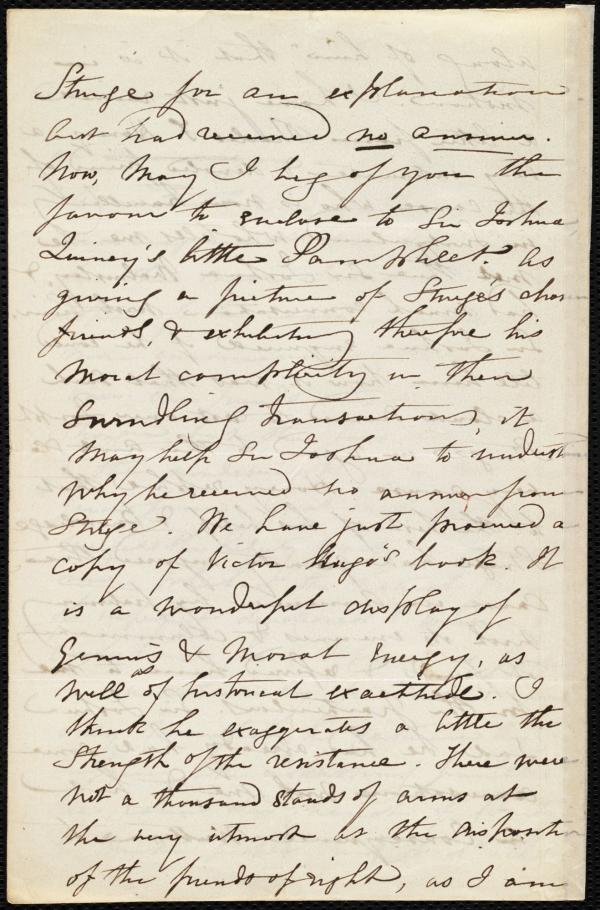 Sturge for an explanation
but had received no answer.
Now, May I beg of you the
favour to enclose to Sir Joshua
Quincy's little Pamphlet. As
giving a picture of Sturge's
friends, & exhibiting therefore his
moral complicity in their
Swindling transactions, it
May help Sir Joshua to
why he received no answer from
Sturge. We have just procured a
copy of Victor Hugo's book. It
is a wonderful display of
Genius & Moral energy, as
well as of historical exactitude. I
think he exaggerates a little the
Strength of the resistance. There were
not a thousand stands of arms at
the very utmost at the
of the friends of right, as I am